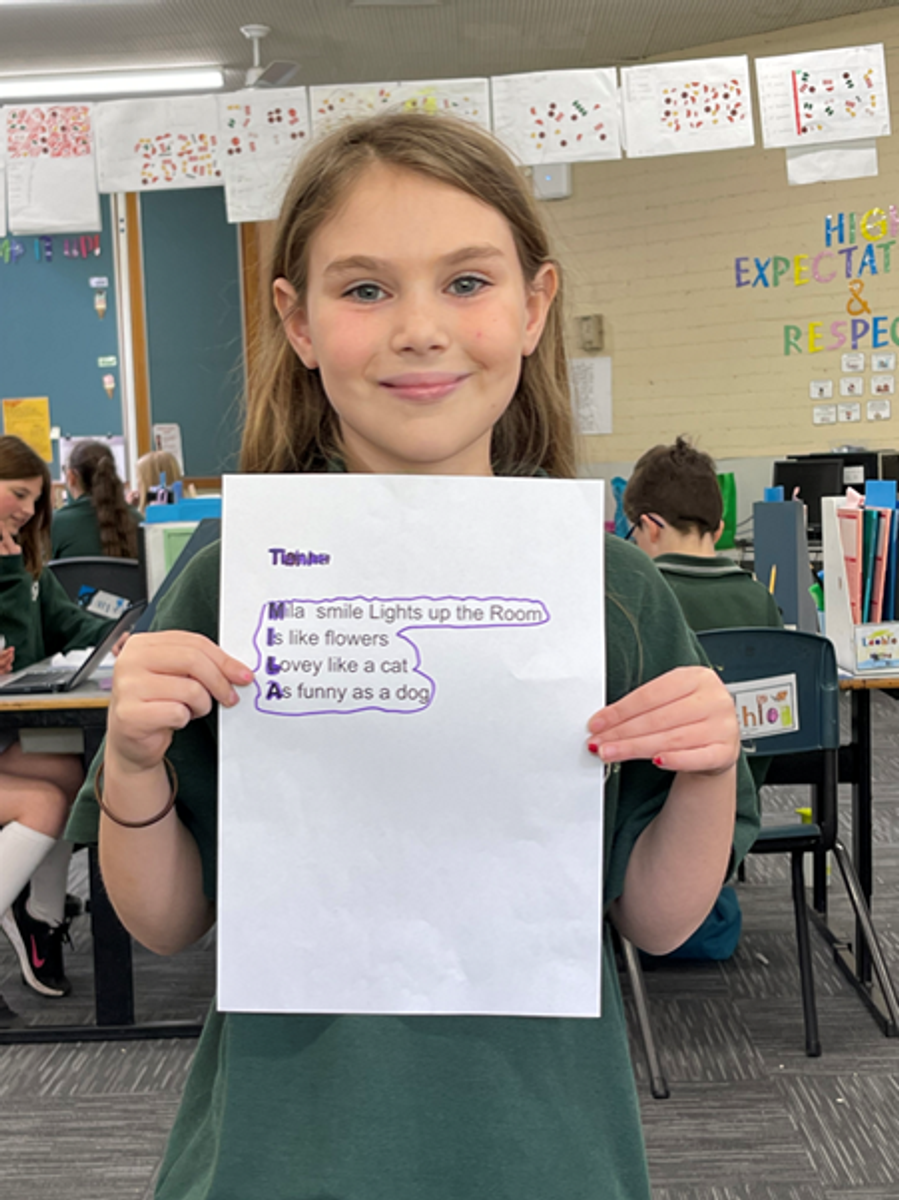 HIGH
EXPECTAT
&
RESPEC
Mila smile Lights up the Room
Is like flowers
Lovey like a cat
As funny as a dog